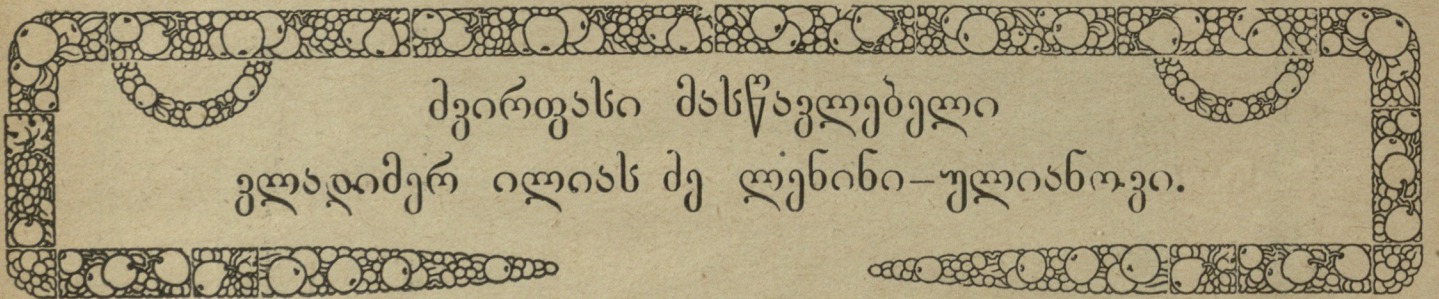 ძვირფასი მასწავლებელი
ვლადიმერ ილიას ძე ლენინი–ულიანოვი.